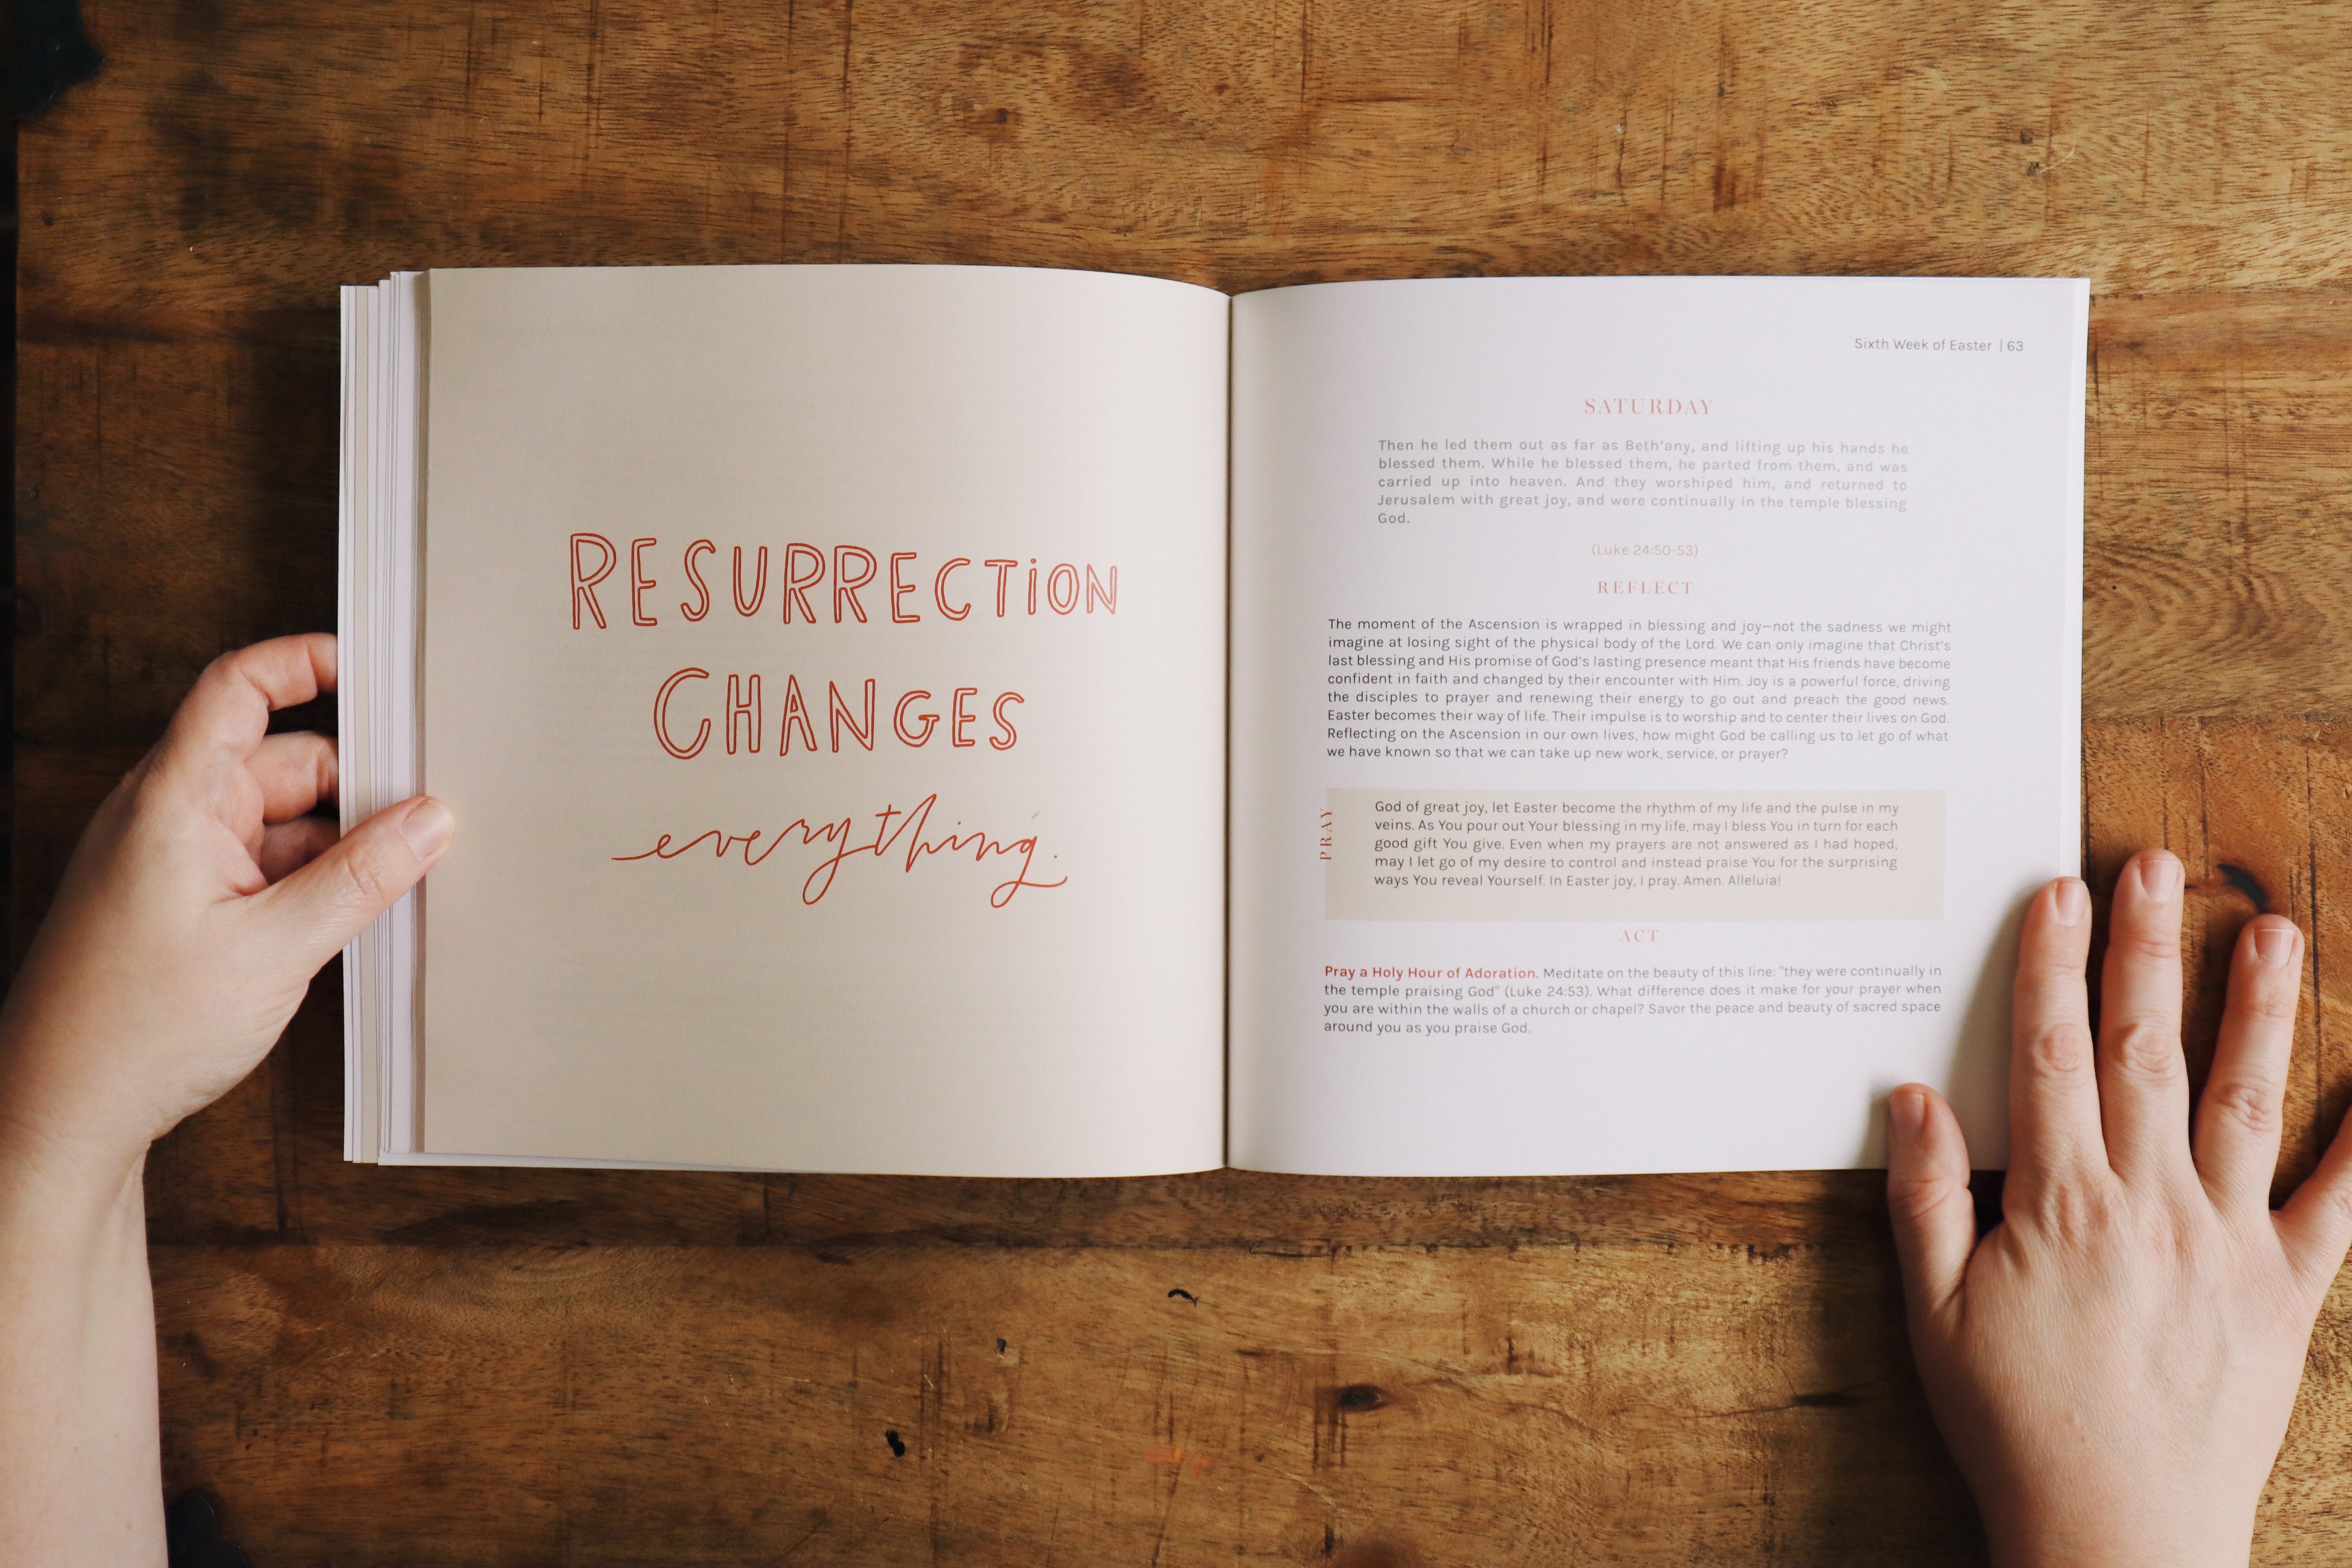 RESURRECTION
CHANGES
everything.
Sixth Week of Easter | 63
SATURDAY
Then he led them out as far as Beth'any, and lifting up his hands he
blessed them. While he blessed them, he parted from them, and was
carried up into heaven. And they worshiped him, and returned to
Jerusalem with great joy, and were continually in the temple blessing
God.
(Luke 24:50-53)
REFLECT
The moment of the Ascension is wrapped in blessing and joy—not the sadness we might
imagine at losing sight of the physical body of the Lord. We can only imagine that Christ's
last blessing and His promise of God's lasting presence meant that His friends have become
confident in faith and changed by their encounter with Him. Joy is a powerful force, driving
the disciples to prayer and renewing their energy to go out and preach the good news.
Easter becomes their way of life. Their impulse is to worship and to center their lives on God.
Reflecting on the Ascension in our own lives, how might God be calling us to let go of what
we have known so that we can take up new work, service, or prayer?
PRAY
God of great joy, let Easter become the rhythm of my life and the pulse in my
veins. As You pour out Your blessing in my life, may I bless You in turn for each
good gift You give. Even when my prayers are not answered as I had hoped,
may I let go of my desire to control and instead praise You for the surprising
ways You reveal Yourself. In Easter joy, I pray. Amen. Alleluia!
ACT
Pray a Holy Hour of Adoration. Meditate on the beauty of this line: "they were continually in
the temple praising God" (Luke 24:53). What difference does it make for your prayer when
you are within the walls of a church or chapel? Savor the peace and beauty of sacred space
around you as you praise God.